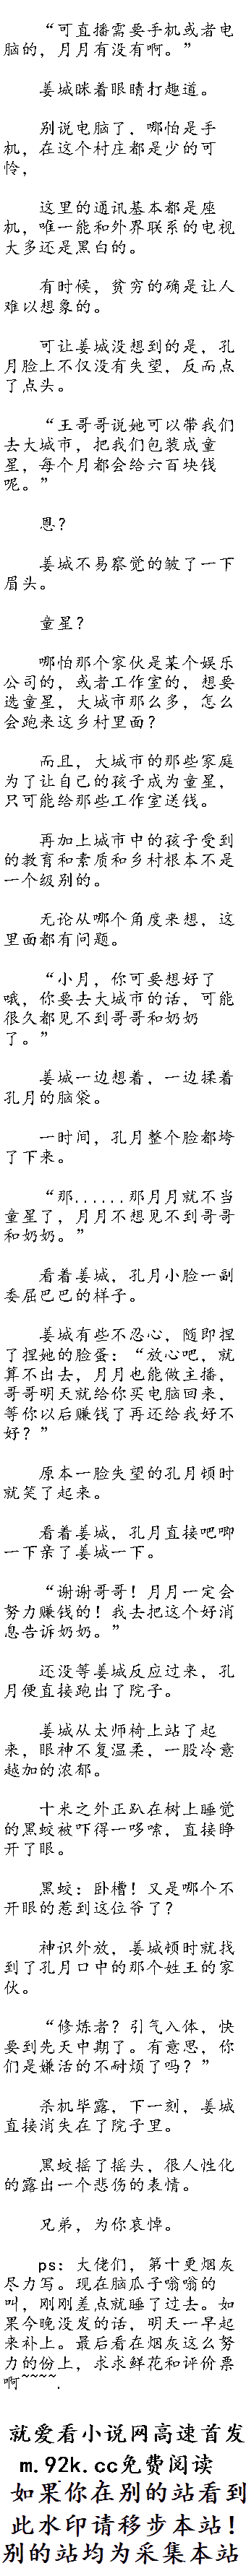 “可直播需要手机或者电
脑的，月月有没有啊。”
姜城眯着眼睛打趣道。
别说电脑了，哪怕是手
机，在这个村庄都是少的可
怜，
这里的通讯基本都是座
机，唯一能和外界联系的电视
大多还是黑白的。
有时候，贫穷的确是让人
难以想象的。
可让姜城没想到的是，孔
月脸上不仅没有失望，反而点
了点头。
“王哥哥说她可以带我们
去大城市，把我们包装成童
星，每个月都会给六百块钱
呢。”
恩？
姜城不易察觉的皱了一下
眉头。
童星？
哪怕那个家伙是某个娱乐
公司的，或者工作室的，想要
选童星，大城市那么多，怎么
会跑来这乡村里面？
而且，大城市的那些家庭
为了让自己的孩子成为童星，
只可能给那些工作室送钱。
再加上城市中的孩子受到
的教育和素质和乡村根本不是
一个级别的。
无论从哪个角度来想，这
里面都有问题。
“小月，你可要想好了
哦，你要去大城市的话，可能
很久都见不到哥哥和奶奶
了。”
姜城一边想着，一边揉着
孔月的脑袋。
一时间，孔月整个脸都垮
了下来。
“那......那月月就不当
童星了，月月不想见不到哥哥
和奶奶。”
看着姜城，孔月小脸一副
委屈巴巴的样子。
姜城有些不忍心，随即捏
了捏她的脸蛋：“放心吧，就
算不出去，月月也能做主播，
哥哥明天就给你买电脑回来，
等你以后赚钱了再还给我好不
好？”
原本一脸失望的孔月顿时
就笑了起来。
看着姜城，孔月直接吧唧
一下亲了姜城一下。
“谢谢哥哥！月月一定会
努力赚钱的！我去把这个好消
息告诉奶奶。”
还没等姜城反应过来，孔
月便直接跑出了院子。
姜城从太师椅上站了起
来，眼神不复温柔，一股冷意
越加的浓郁。
十米之外正趴在树上睡觉
的黑蛟被吓得一哆嗦，直接睁
开了眼。
黑蛟：卧槽！又是哪个不
开眼的惹到这位爷了？
神识外放，姜城顿时就找
到了孔月口中的那个姓王的家
伙。
“修炼者？引气入体，快
要到先天中期了。有意思，你
们是嫌活的不耐烦了吗？”
杀机毕露，下一刻，姜城
直接消失在了院子里。
黑蛟摇了摇头，很人性化
的露出一个悲伤的表情。
兄弟，为你哀悼。
ps：大佬们，第十更烟灰
尽力写。现在脑瓜子嗡嗡的
叫，刚刚差点就睡了过去。如
果今晚没发的话，明天一早起
来补上。最后看在烟灰这么努
力的份上，求求鲜花和评价票
啊~~~~.
就爱看小说网高速首发
m.92k.cc免费阅读
如果你在别的站看到
此水印请移步本站！
别的站均为采集本站